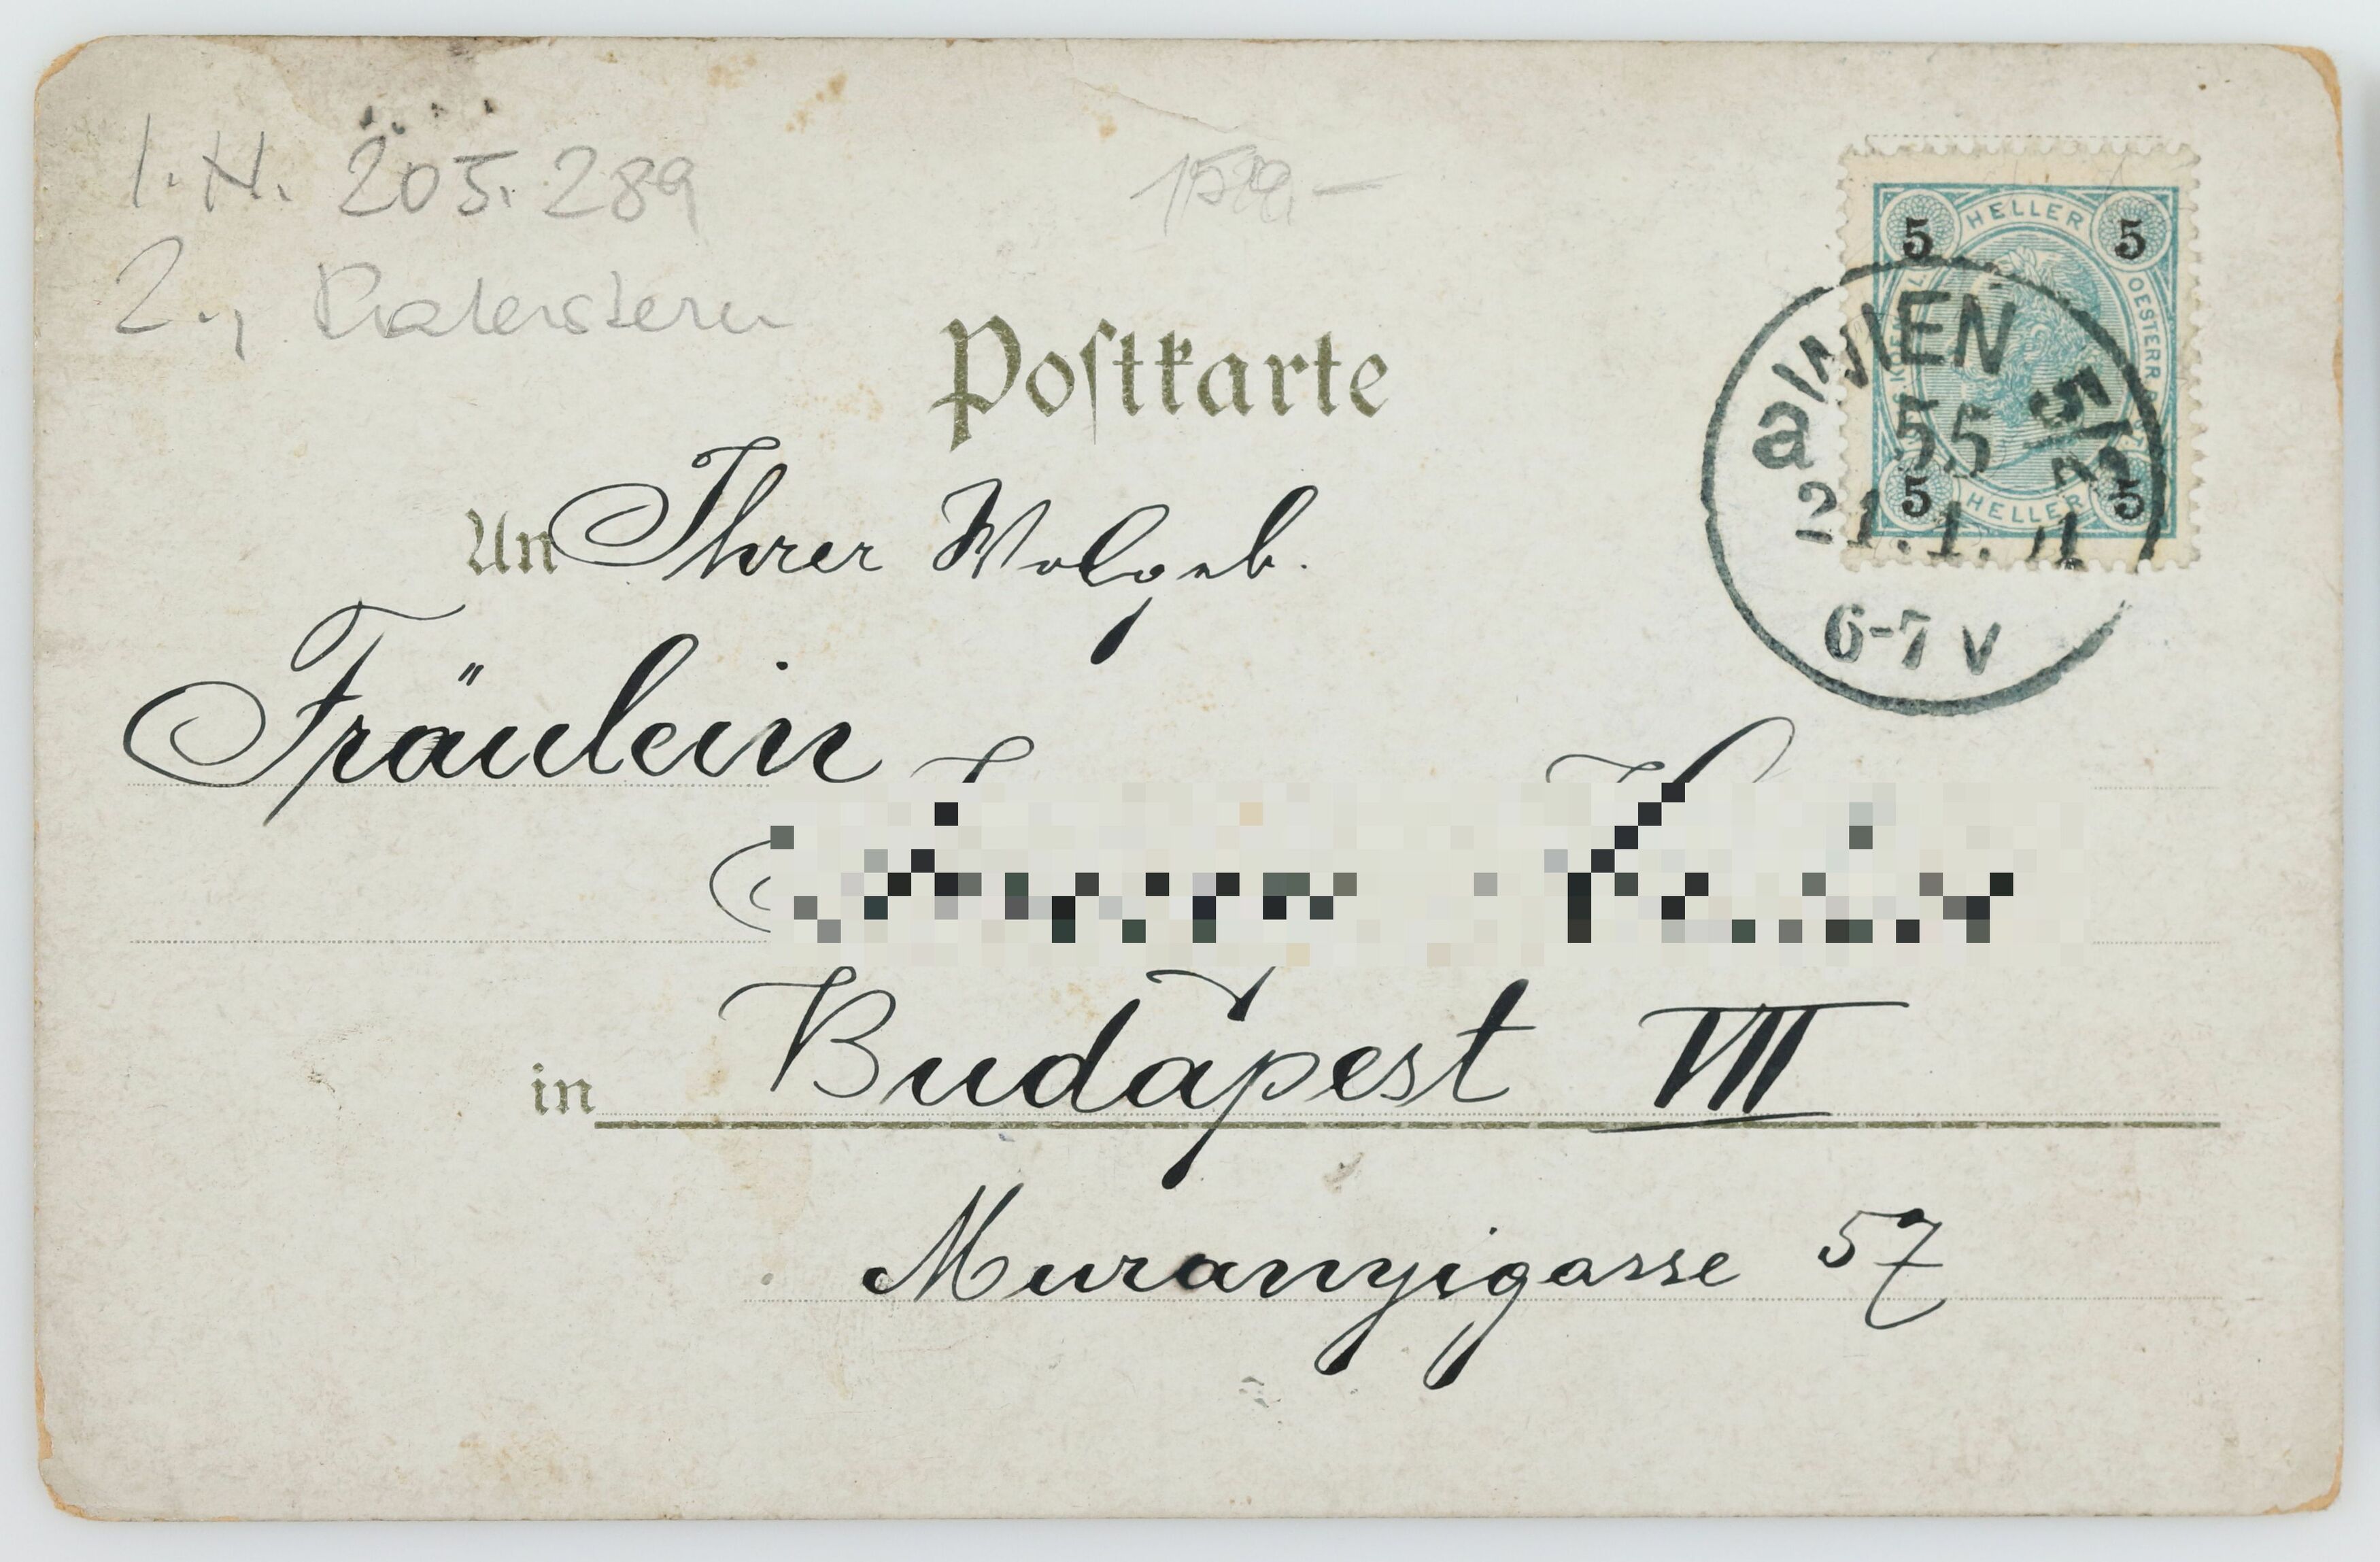 I.N. 205.289
2., Praterstern
Postkarte
HELLER
5 5
OESTERR.
5 5
HELLER
a WIEN 5/2
55
21.1.
6-7 V
An Ihrer Wolgeb.
Fräulein
in Budapest VII
Muranyigasse 57